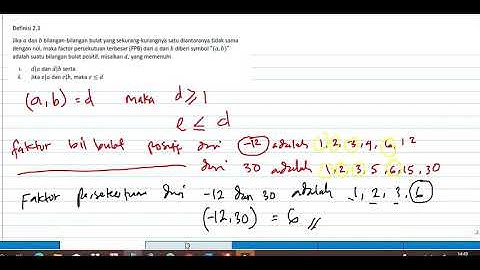 Definisi 2.3
Jika a dan b bilangan-bilangan bulat yang sekurang-kurangnya satu diantaranya tidak sama
dengan nol, maka faktor persekutuan terbesar (FPB) dari a dan b diberi symbol "(a, b)"
adalah suatu bilangan bulat positif, misalkan d, yang memenuhi
i. d|a dan d|b serta
ii. Jika e|a dan e|b, maka e ≤ d
(a,b) = d maka d ≥ 1
e ≤ d
Faktor bil bulat positif dari -12 adalah 1, 2, 3, 4, 6, 12
dari 30 adalah 1, 2, 3, 5, 6, 15, 30
Faktor persekutuan dari -12 dan 30 adalah 1, 2, 3, 6
(-12, 30) = 6 //